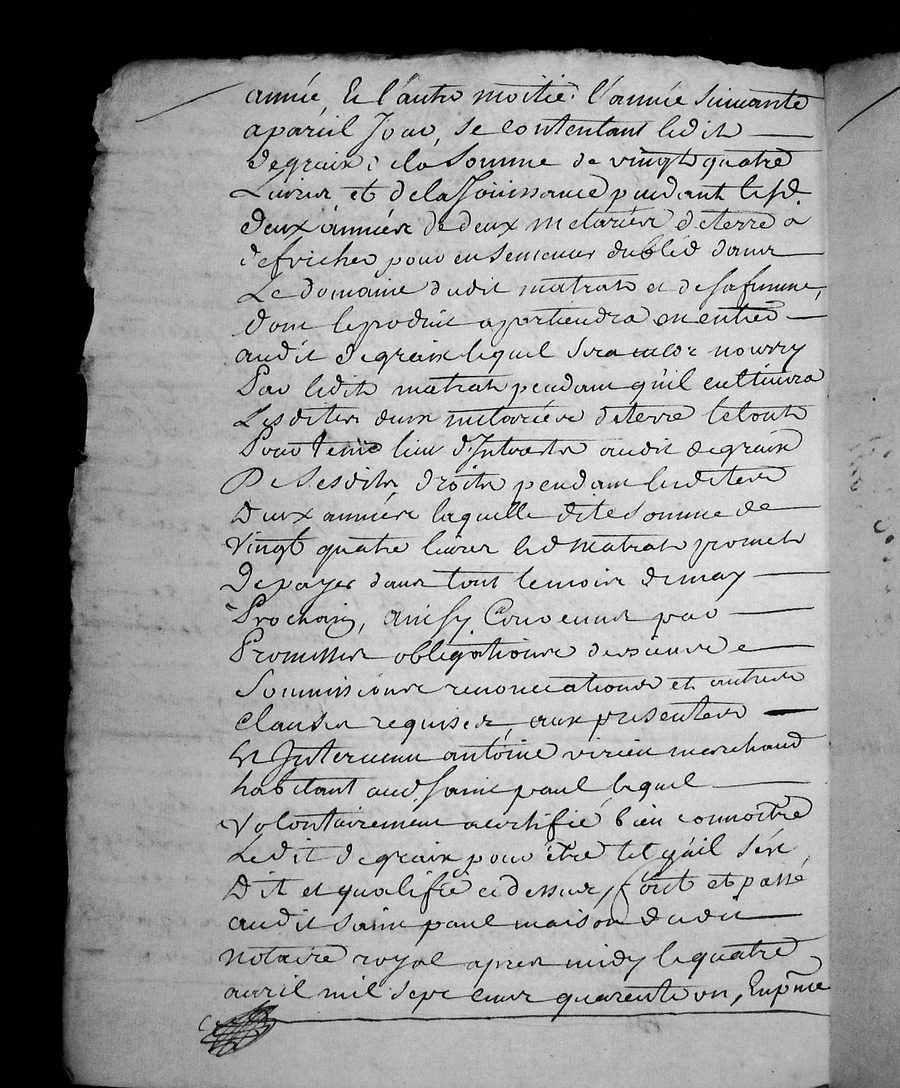 année, Et l'autre moitié l'année suivante
a pareil Jour, se contentant ledit
degraix de la somme de vingt quatre
Livres et de la Jouissance pendant lesd.
deux années de deux metairées de terre a
defricher pour ensemencer du bled dans
Le domaine dudit matrat et de sa femme,
dont le produit apartiendra en entier
audit degraix lequel sera nourry
Par ledit matrat pendant qu'il cultivera
Lesdites deux de terre le tout
Pour tenir lieu d'Interets audit degraix
De Sesdits droits pendant lesdites
Deux années laquelle dite somme de
Vingt quatre livres led matrat promet
De payer dans tout le mois de may
Prochain, ainsy Convenu par
Promesses obligations
Soumissions renonciations et autres
clauses requises, aux presentes
Est Intervenu antoine virieu marchand
habitant aud. saint paul lequel
Volontairement a certifié bien connoitre
Ledit degraix pour être tel qu'il s'est
Dit et qualifié cy dessus, fait et passé
audit saint paul maison dudit
notaire royal apres midy le quatre
avril mil sept cent quarente un, En pnce